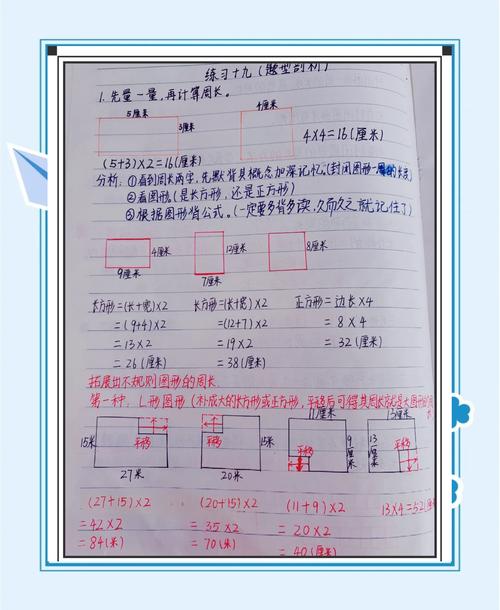 练习十九(题型剖析)
1.先量一量,再计算周长。
5厘米
3厘米
4厘米
4×4=16(厘米)
(5+3)×2=16(厘米)
分析:①看到周长两字,先默背其概念加深记忆.(封闭图形一周的长度)
②看图形,(是长方形,还是正方形)
③根据图形背公式。(一定要多背多读,久而久之就记住了)
4厘米
12厘米
8厘米
9厘米
7厘米
长方形=(长+宽)×2 长方形=(长+宽)×2 正方形=边长×4
=(9+4)×2 =(12+7)×2 =8×4
=13×2 =19×2 =32(厘米)
=26(厘米) =38(厘米)
拓展出不规则图形的周长.
第一种:L形图形(补成大的长方形或正方形,平移后可得其周长就是大图形的周
11厘米 13厘米
15米 平移 平移 15米 平移 9厘米 13厘米 平移
27米 20米
(27+15)×2 (20+15)×2 (11+9)×2 13×4=52(厘
=42×2 =35×2 =20×2
=84(米) =70(米) =40(厘米)